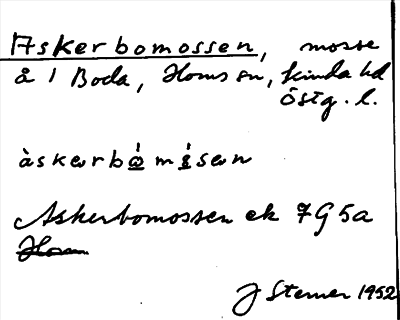 Askerbomossen, mosse
å 1 Boda, Horns sn, Kinda hd
Östg. l.
àskərbώ̲ mɩ̲́sən
Askerbomossen ek 7G 5a
Horn
J Sterner 1952